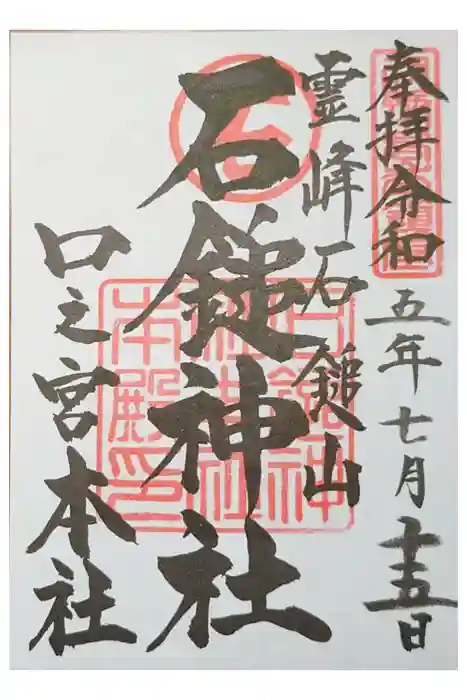 奉拝令和五年七月十五日
霊峰石鎚山
石鎚神社
口之宮本社
石鎚神社本殿印